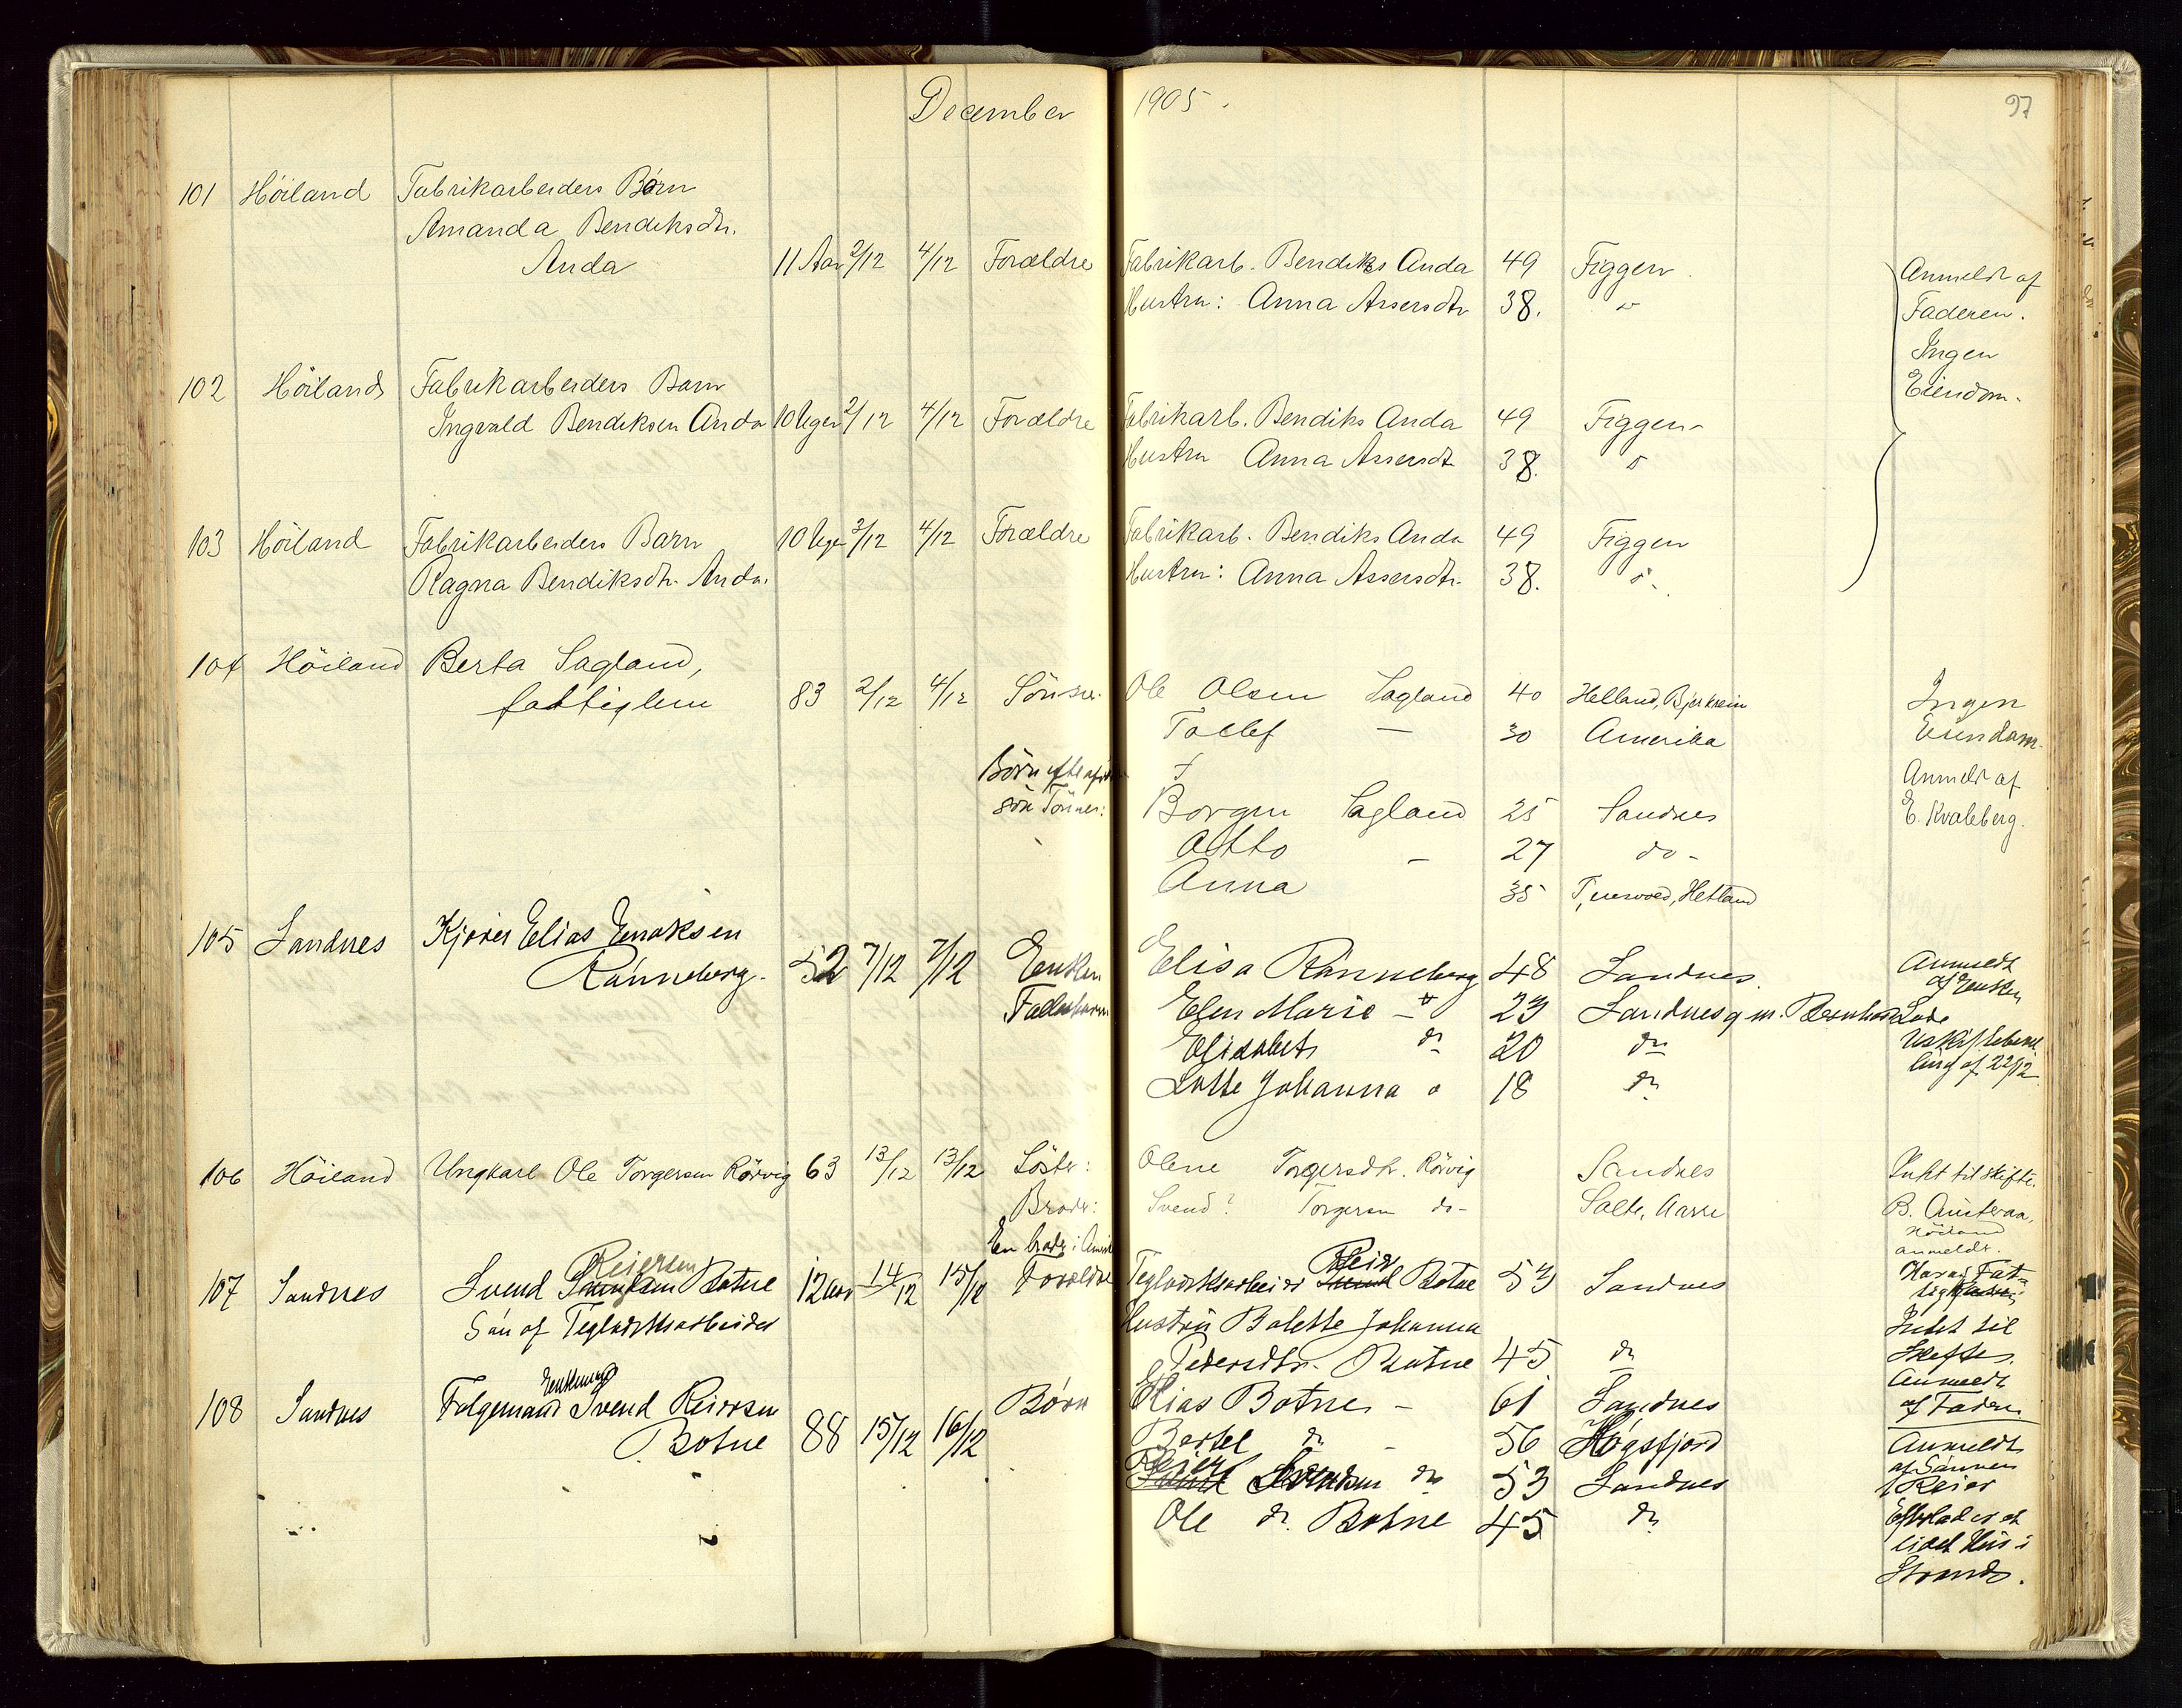 December 1905.
97
101 Höiland Fabrikarbeiders Børn
Amanda Bendiksdtr.
Anda 11 Aar 2/12 4/12 Forældre Fabrikarb. Bendiks Anda 49 Figgen.
Hustru: Anna Assersdtr 38. o
Anmeldt af
Faderen.
Ingen
Eiendom.
102 Höiland Fabrikarbeiders Barn
Ingvald Bendiksen Anda 10 Uger 2/12 4/12 Forældre Fabrikarb. Bendiks Anda 49 Figgen
Hustru Anna Assersdtr 38. o
103 Höiland Fabrikarbeiders Barn 10 Uger 3/12 4/12 Forældre Fabrikarb. Bendiks Anda 49 Figgen
Ragna Bendiksdtr. Anda. Hustru: Anna Assersdtr. 38. o
104 Höiland Berta Sagland,
fattiglem 83 2/12 4/12 Sönner Ole Olsen Sagland 40 Helland, Bjerkreim
Tollef — 30 Amerika
Ingen
Eiendom.
Börn efter
sön Tönnes: Borgen Sagland 25 Sandnes
Otto — 27 do -
Anna 35 Hetland
Anmeldt af
E. Kvaleberg.
105 Sandnes Kjører Elias Enoksen
Rønneberg. 52 7/12 7/12 Enken Elisa Rønneberg 48 Sandnes.
Ellen Marie 23 Sandnes g m.
Elisabet do 20 do
Lotte Johanna o 18 do
Anmeldt
af Enken
106 Höiland Ungkarl Ole Torgersen Rörvig 63 13/12 13/12 Söster: Olene Torgersdtr. Rörvig Sandnes
Broder: Svend? Torgersen do- Salte,
En broder i
Intet til skifte.
Höiland
anmeldt.
107 Sandnes Svend Reiersen Botne 12 aar 14/12 15/12 Forældre Teglværksarbeider Reier Botne 53 Sandnes
Søn af Teglværksarbeider Hustru Bolette Johanna
Pedersdtr. Botne 45 do
Intet til
Skifte.
Anmeldt
af Faderen
108 Sandnes Enkemand
Folgemand Svend Reiersen
Botne 88 15/12 16/12 Børn Elias Botne - 61 Sandnes
Bertel do - 56 Høgsfjord
Reier Svendsen do 53 Sandnes
Ole do. Botne 45 do
Anmeldt
af Sønnen
Reier
Efterlader et
lidet Hus i
Strand.